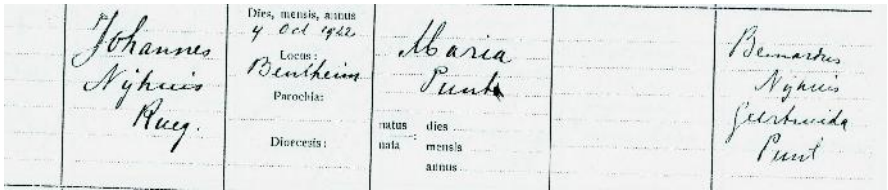 Johannes
Nijhuis
Rueg.
Dies, mensis, annus
4 Oct 1922
Locus:
Bentheim
Parochia:
Dioecesis:
Maria
Punt
natus dies
nata : mensis
annus
Bernardus
Nijhuis
Geertruida
Punt